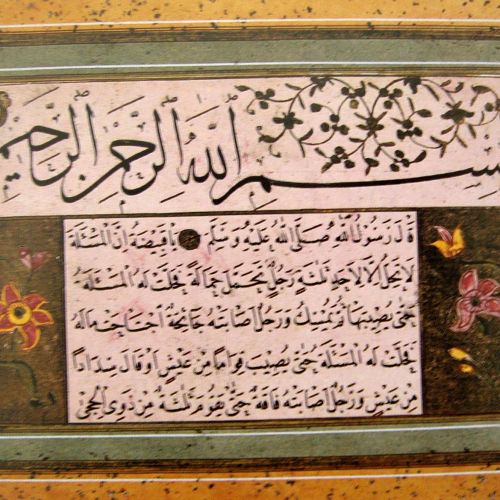 بِسْمِ اللهِ الرَّحْمٰنِ الرَّحِيْمِ
قَالَ رَسُولُ اللهِ صَلَّى اللهُ عَلَيْهِ وَسَلَّمَ يَا قَبِيْصَةُ اِنَّ الْمَسْئَلَةَ
لَا تَحِلُّ اِلَّا لِاَحَدِ ثَلٰثَةٍ رَجُلٌ تَحَمَّلَ حَمَالَةً فَحَلَّتْ لَهُ الْمَسْئَلَةُ
حَتّٰى يُصِيْبَهَا ثُمَّ يُمْسِكُ وَرَجُلٌ اَصَابَتْهُ جَائِحَةٌ اجْتَاحَتْ مَالَهُ
فَحَلَّتْ لَهُ الْمَسْئَلَةُ حَتّٰى يُصِيْبَ قِوَامًا مِنْ عَيْشٍ اَوْ قَالَ سِدَادًا
مِنْ عَيْشٍ وَرَجُلٌ اَصَابَتْهُ فَاقَةٌ حَتّٰى يَقُومَ ثَلٰثَةٌ مِنْ ذَوِي الْحِجٰى